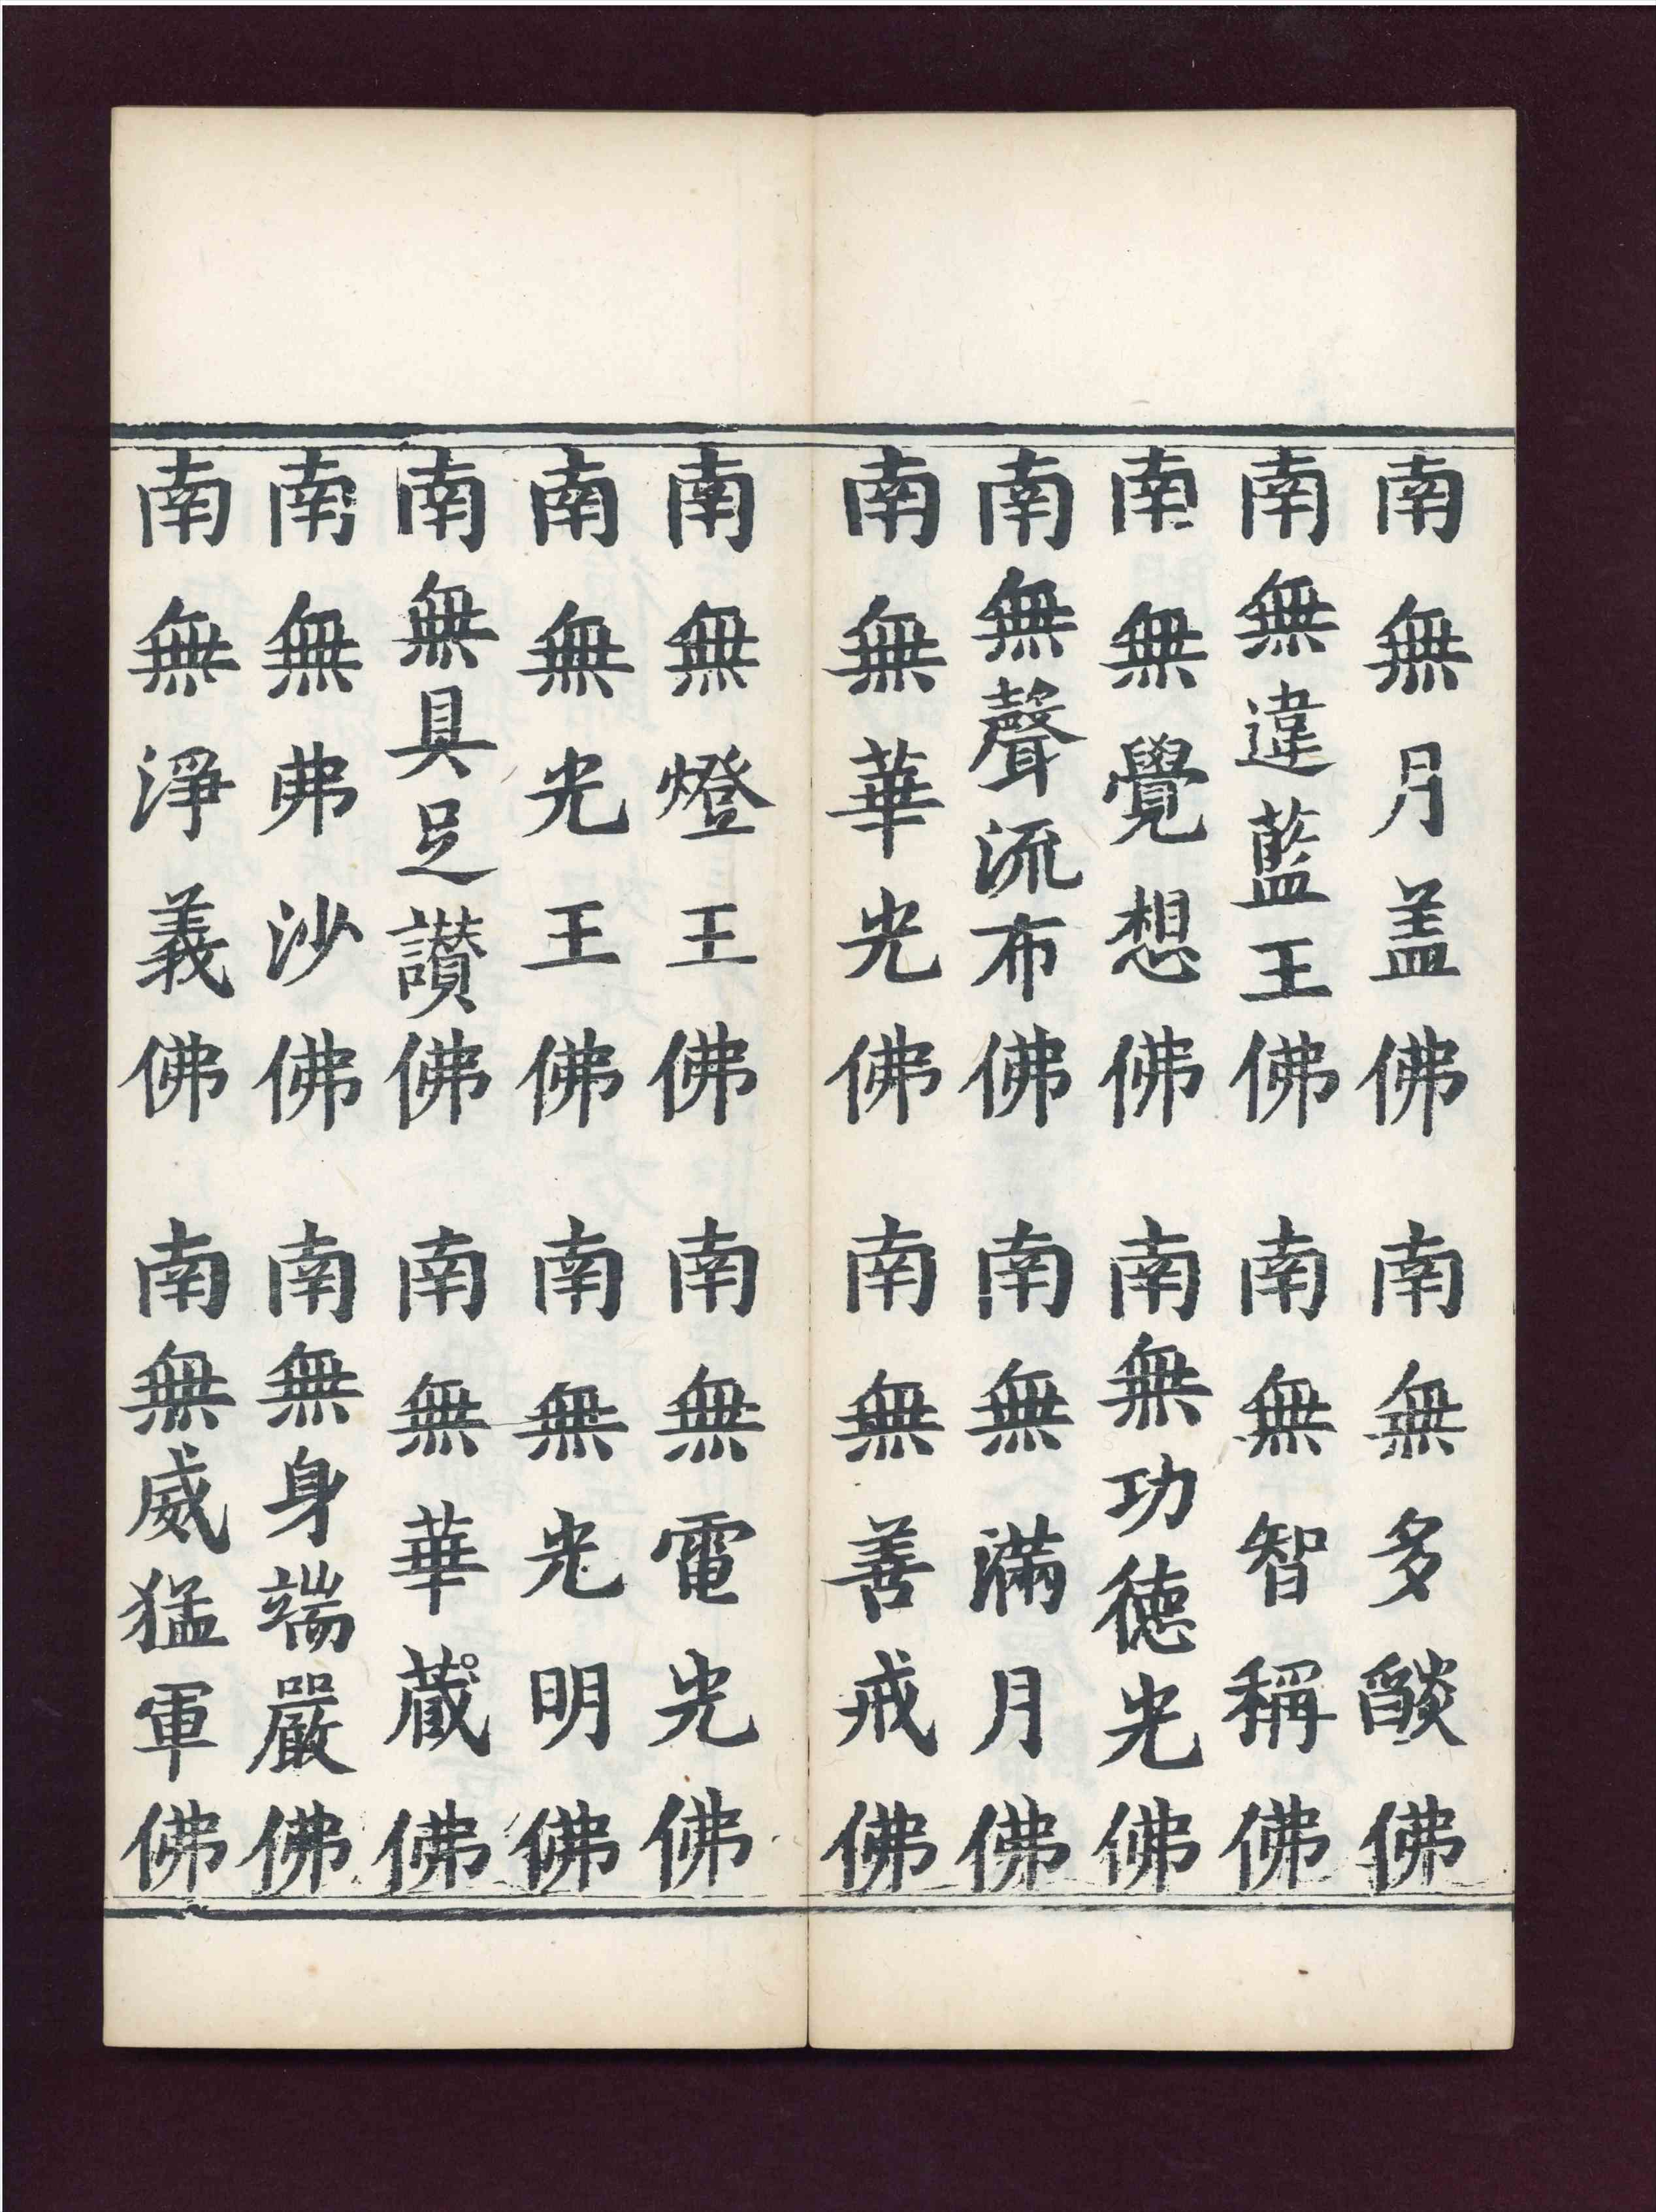 南無月盖佛　南無多燄佛
南無違藍王佛　南無智稱佛
南無覺想佛　南無功德光佛
南無聲流布佛　南無滿月佛
南無華光佛　南無善戒佛
南無燈王佛　南無電光佛
南無光王佛　南無光明佛
南無具足讃佛　南無華蔵佛
南無弗沙佛　南無身端嚴佛
南無淨義佛　南無威猛軍佛